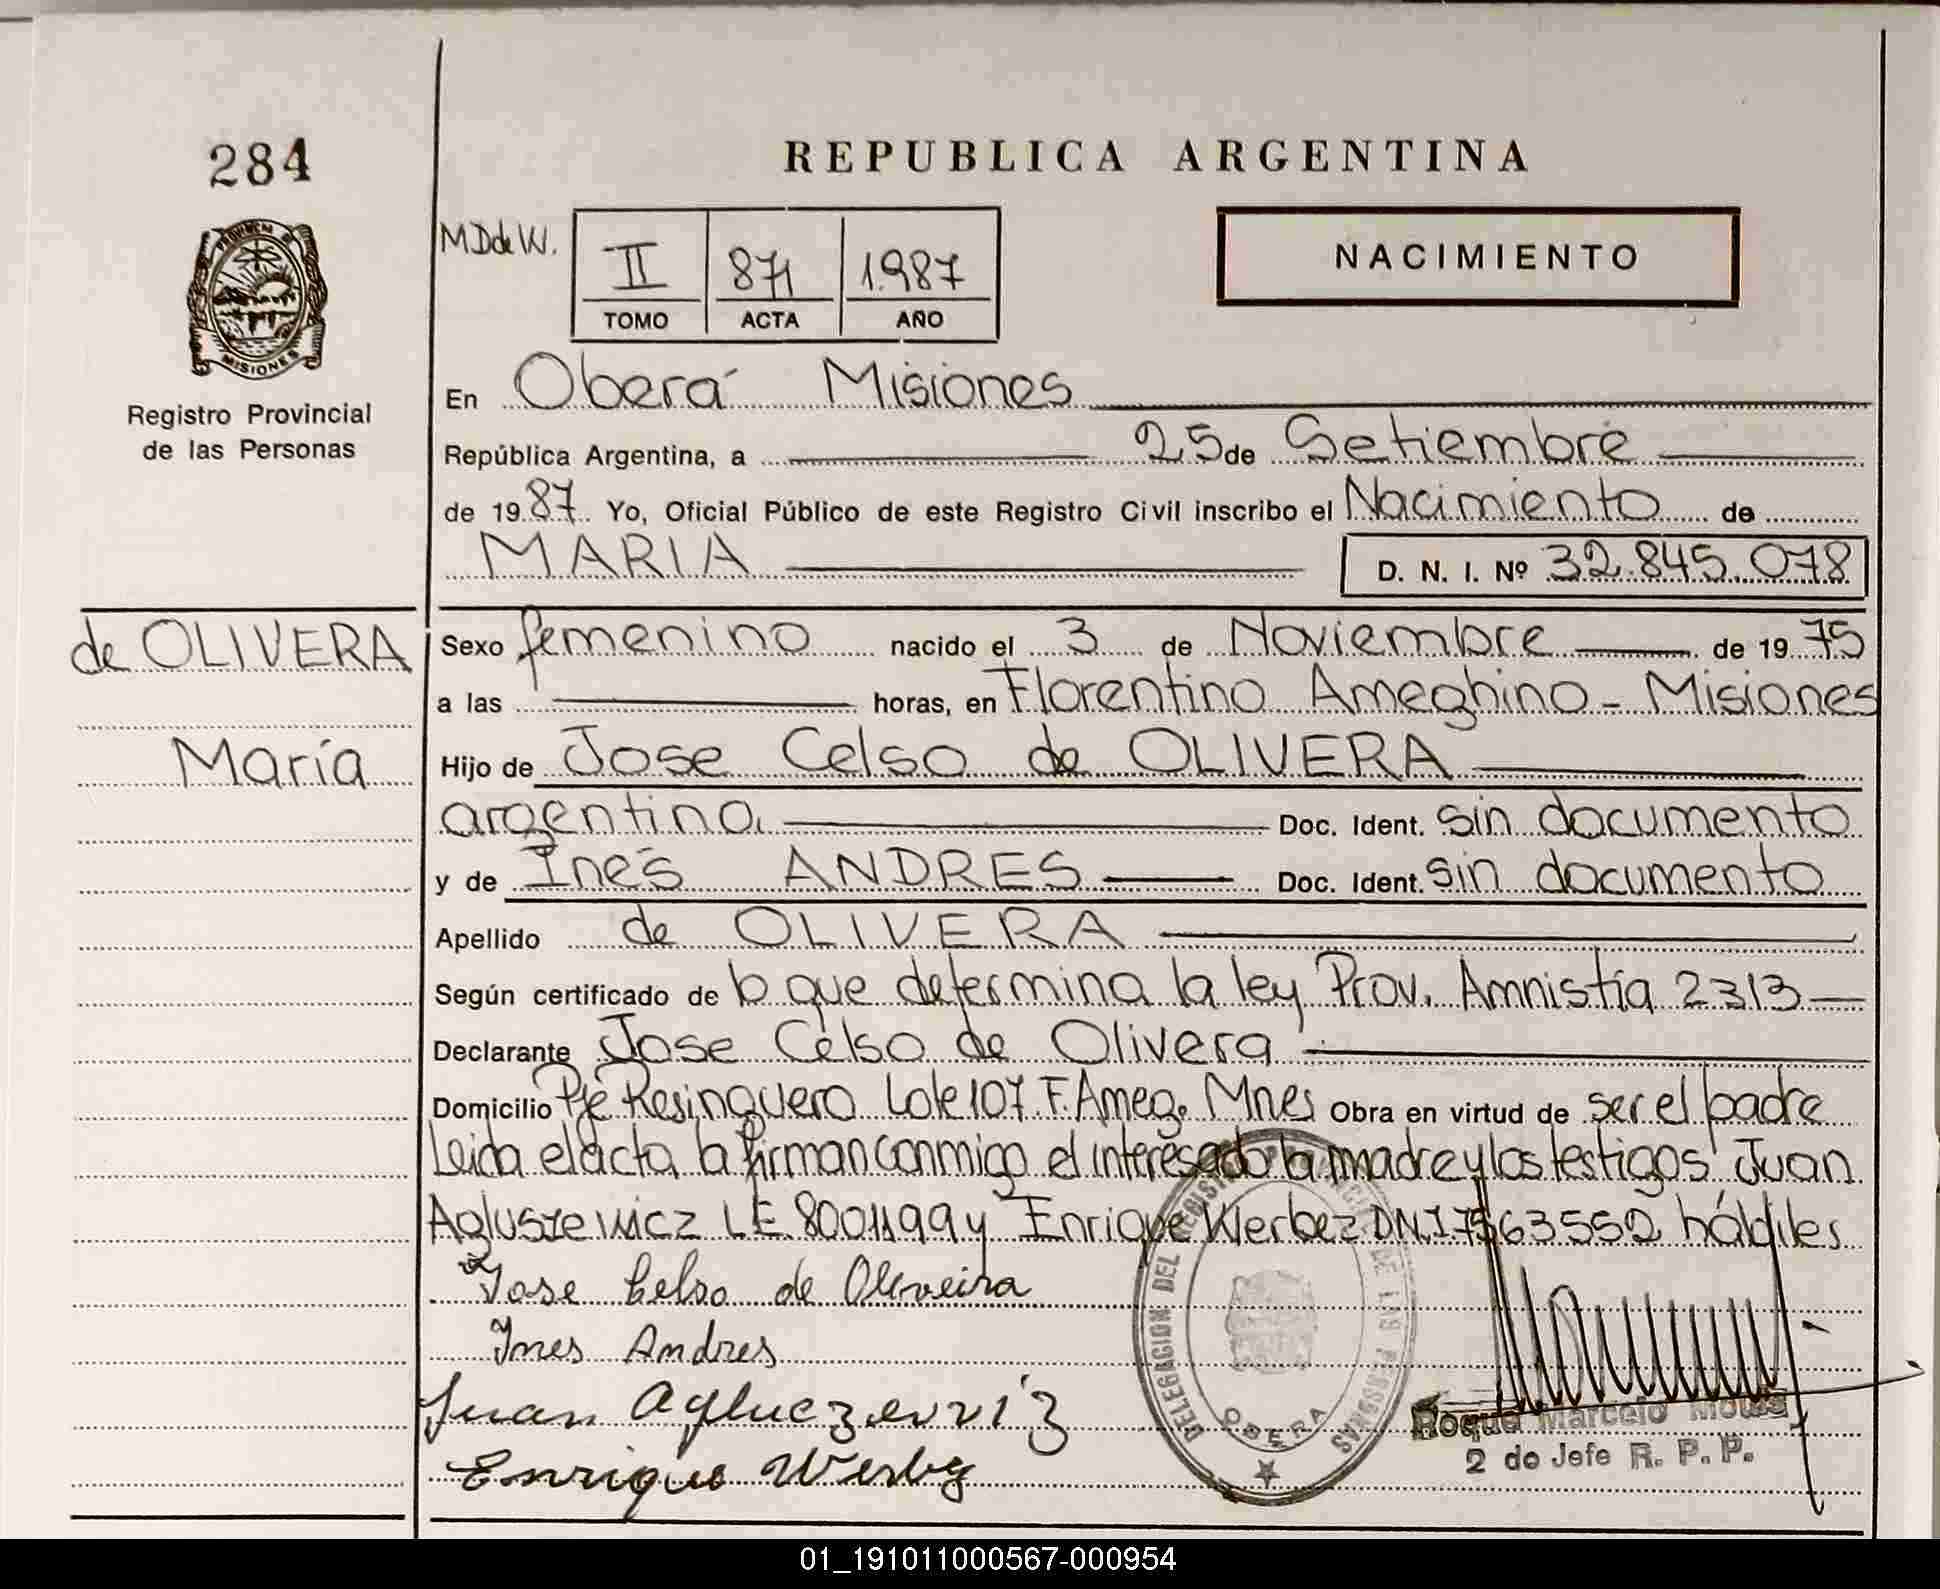 284
REPUBLICA ARGENTINA
PROVINCIA DE
MISIONES
Registro Provincial
de las Personas
MD de W.
II 871 1.987
TOMO ACTA AÑO
NACIMIENTO
En Oberá Misiones
República Argentina, a 25 de Setiembre
de 1987. Yo, Oficial Público de este Registro Civil inscribo el Nacimiento de
MARIA D. N. I. Nº 32.845.078
de OLIVERA
María
Sexo femenino nacido el 3 de Noviembre de 1975
a las horas, en Florentino Ameghino - Misiones
Hijo de Jose Celso de OLIVERA
argentino. Doc. Ident. sin documento
y de Inés ANDRES Doc. Ident. sin documento
Apellido de OLIVERA
Según certificado de lo que determina la ley Prov. Amnistía 2313
Declarante Jose Celso de Olivera
Domicilio Pje Resinguero Lote 107 F. Ameg. Mnes Obra en virtud de ser el padre
Leida el acta la firman conmigo el interesado la madre y los testigos Juan
Agluszewicz LE. 8001199 y Enrique Werbez DNI 7563552 hábiles
Jose Celso de Oliveira
Ines Andres
Juan
Enrique
DELEGACION DEL REGISTRO PROVINCIAL DE LAS PERSONAS
OBERA
Roque Marcelo
2 do Jefe R. P. P.
01_191011000567-000954